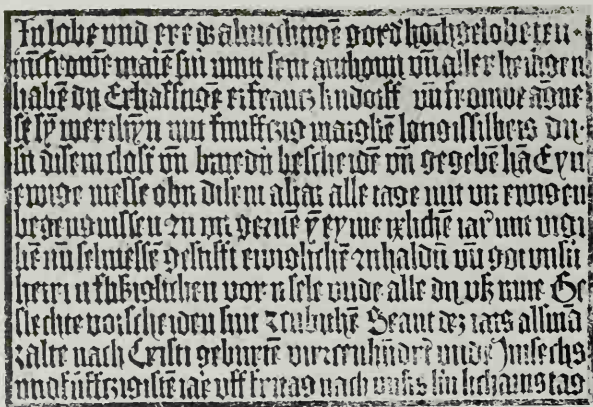 In lobe vnd ere ds almechtigē gotdˢ hochgelobeten
iūcfrowē marīē sin vnn sent anthonij vn̄ aller heiligen
habē dˢ Erhafftige er frantz lindorff vn̄ frouwe agne
se sy werthyn mit funffczig margkē lotigis silbers
In disem closˢ vn̄ brudˢn bescheidē vn̄ gegebē Eyn
ewige messe obir disem altar alle tage mit ewigen
begengnissen zu ey me iar mit vigi
liē vn̄ selmessē gestifft ewiglichē zuhaldn̄ vn̄ got vnsn̄
herrn flißiglichen vor sele vnde alle dy vß Ge
slechte vorscheiden sint Geant dez iars allma̅
zalte nach Cristi geburtē virczenhūdˢt vnde Im sechs
vnd fūfftzigistē iar vff fritag nach lichams tag